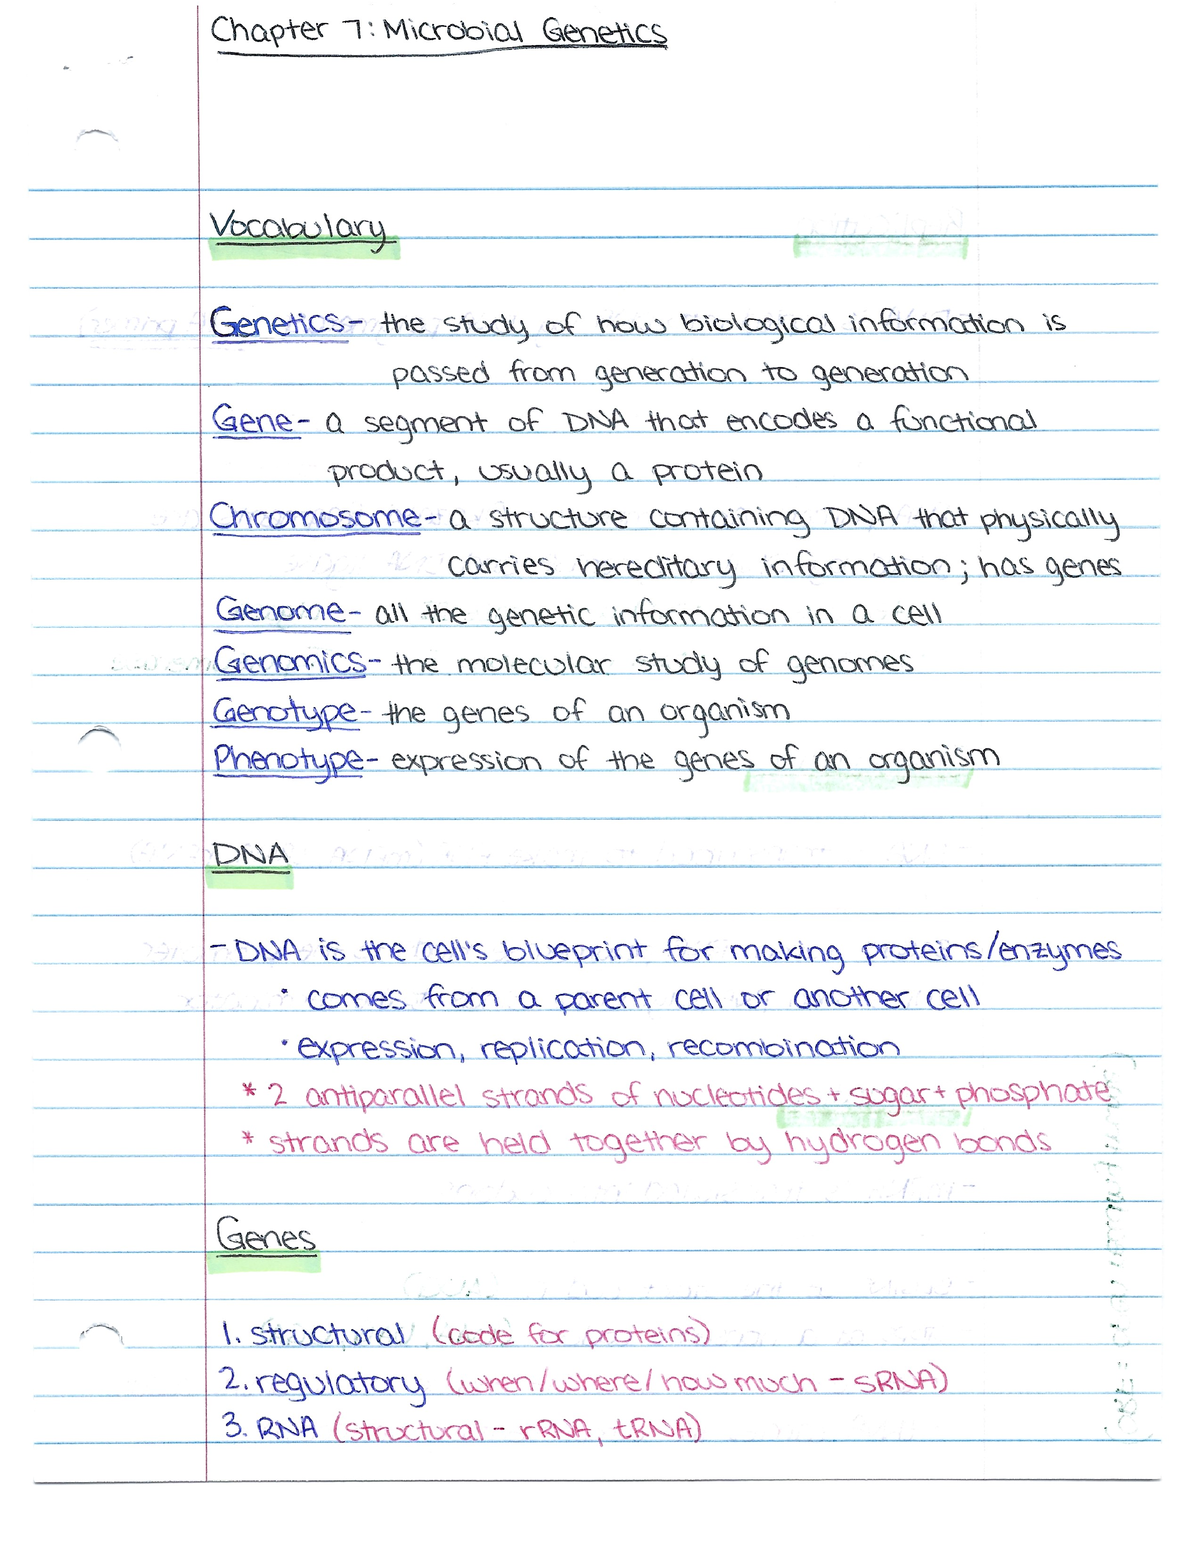 Chapter 7: Microbial Genetics
Vocabulary
Genetics- the study of how biological information is
passed from generation to generation
Gene- a segment of DNA that encodes a functional
product, usually a protein
Chromosome- a structure containing DNA that physically
carries hereditary information; has genes
Genome- all the genetic information in a cell
Genomics- the molecular study of genomes
Genotype- the genes of an organism
Phenotype- expression of the genes of an organism
DNA
- DNA is the cell's blueprint for making proteins/enzymes
• comes from a parent cell or another cell
• expression, replication, recombination
* 2 antiparallel strands of nucleotides + sugar + phosphate
* strands are held together by hydrogen bonds
Genes
1. structural (code for proteins)
2. regulatory (when/where/how much - sRNA)
3. RNA (structural - rRNA, tRNA)